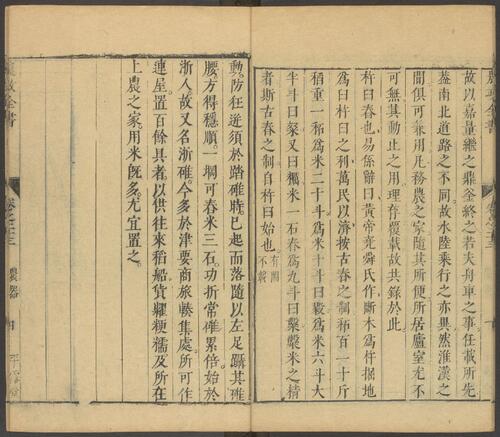 故以嘉量繼之鼎釜終之若夫舟車之事任載所先
蓋南北道路之不同故水陸乘行之亦異然淮漢之
間俱可兼用凡務農之家隨其所便所居廬室尤不
可無其動止之用理存覆載故共錄於此
杵臼舂也易係辭曰黃帝堯舜氏作斷木爲杵掘地
爲臼杵臼之利萬民以濟按古舂之制䄷百二十斤
稻重一䄷爲米二十斗爲米十斗曰毇爲米六斗大
半斗曰粲又曰糲米一石舂爲九斗曰糳糳米之精
者斯古舂之制自杵臼始也
有圖
不載
動防往迸須於踏碓時已起而落隨以左足躡其碓
腰方得穩順一堈可舂米三石功折常碓累倍始於
浙人故又名浙碓今多於津要商旅輳集處所可作
連屋置百餘具者以供往來稻船貨糶粳糯及所在
上農之家用米旣多尤宜置之
農政全書
卷之二十三
農器